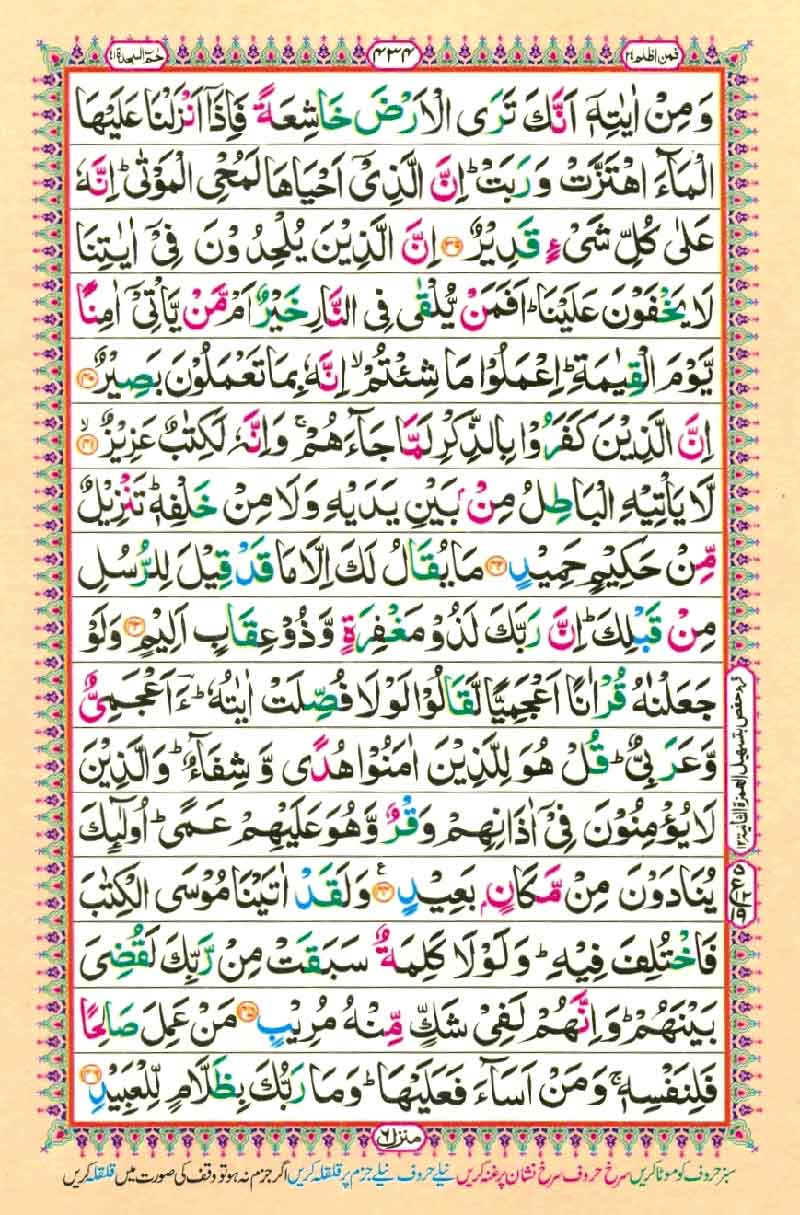 فمن اظلم ٢٤
٤٣٤
حٰمٓ السجدة ٤١
وَمِنْ اٰیٰتِهٖۤ اَنَّكَ تَرَی الْاَرْضَ خَاشِعَةً فَاِذَاۤ اَنْزَلْنَا عَلَیْهَا
الْمَآءَ اهْتَزَّتْ وَرَبَتْ ؕ اِنَّ الَّذِیْۤ اَحْیَاهَا لَمُحْیِ الْمَوْتٰی ؕ اِنَّهٗ
عَلٰی كُلِّ شَیْءٍ قَدِیْرٌ ﴿۳۹﴾ اِنَّ الَّذِیْنَ یُلْحِدُوْنَ فِیْۤ اٰیٰتِنَا
لَا یَخْفَوْنَ عَلَیْنَا ؕ اَفَمَنْ یُّلْقٰی فِی النَّارِ خَیْرٌ اَمْ مَّنْ یَّاْتِیْۤ اٰمِنًا
یَّوْمَ الْقِیٰمَةِ ؕ اِعْمَلُوْا مَا شِئْتُمْ ۙ اِنَّهٗ بِمَا تَعْمَلُوْنَ بَصِیْرٌ ﴿۴۰﴾
اِنَّ الَّذِیْنَ كَفَرُوْا بِالذِّكْرِ لَمَّا جَآءَهُمْ ۚ وَاِنَّهٗ لَكِتٰبٌ عَزِیْزٌ ﴿۴۱﴾ ۙ
لَّا یَاْتِیْهِ الْبَاطِلُ مِنْۢ بَیْنِ یَدَیْهِ وَلَا مِنْ خَلْفِهٖ ؕ تَنْزِیْلٌ
مِّنْ حَكِیْمٍ حَمِیْدٍ ﴿۴۲﴾ مَا یُقَالُ لَكَ اِلَّا مَا قَدْ قِیْلَ لِلرُّسُلِ
مِنْ قَبْلِكَ ؕ اِنَّ رَبَّكَ لَذُوْ مَغْفِرَةٍ وَّذُوْ عِقَابٍ اَلِیْمٍ ﴿۴۳﴾ وَلَوْ
جَعَلْنٰهُ قُرْاٰنًا اَعْجَمِیًّا لَّقَالُوْا لَوْلَا فُصِّلَتْ اٰیٰتُهٗ ؕ ءَاَعْجَمِیٌّ
وَّعَرَبِیٌّ ؕ قُلْ هُوَ لِلَّذِیْنَ اٰمَنُوْا هُدًی وَّشِفَآءٌ ؕ وَالَّذِیْنَ
لَا یُؤْمِنُوْنَ فِیْۤ اٰذَانِهِمْ وَقْرٌ وَّهُوَ عَلَیْهِمْ عَمًی ؕ اُولٰٓئِكَ
یُنَادَوْنَ مِنْ مَّكَانٍۭ بَعِیْدٍ ﴿۴۴﴾ ع وَلَقَدْ اٰتَیْنَا مُوْسَی الْكِتٰبَ
فَاخْتُلِفَ فِیْهِ ؕ وَلَوْلَا كَلِمَةٌ سَبَقَتْ مِنْ رَّبِّكَ لَقُضِیَ
بَیْنَهُمْ ؕ وَاِنَّهُمْ لَفِیْ شَكٍّ مِّنْهُ مُرِیْبٍ ﴿۴۵﴾ مَنْ عَمِلَ صَالِحًا
فَلِنَفْسِهٖ ۚ وَمَنْ اَسَآءَ فَعَلَیْهَا ؕ وَمَا رَبُّكَ بِظَلَّامٍ لِّلْعَبِیْدِ ﴿۴۶﴾
منزل ٦
سبز حروف کو موٹا کریں سرخ حروف سرخ نشان پر غنہ کریں نیلے حروف نیلے جزم پر قلقلہ کریں اگر جزم نہ ہو تو وقف کی صورت میں قلقلہ کریں